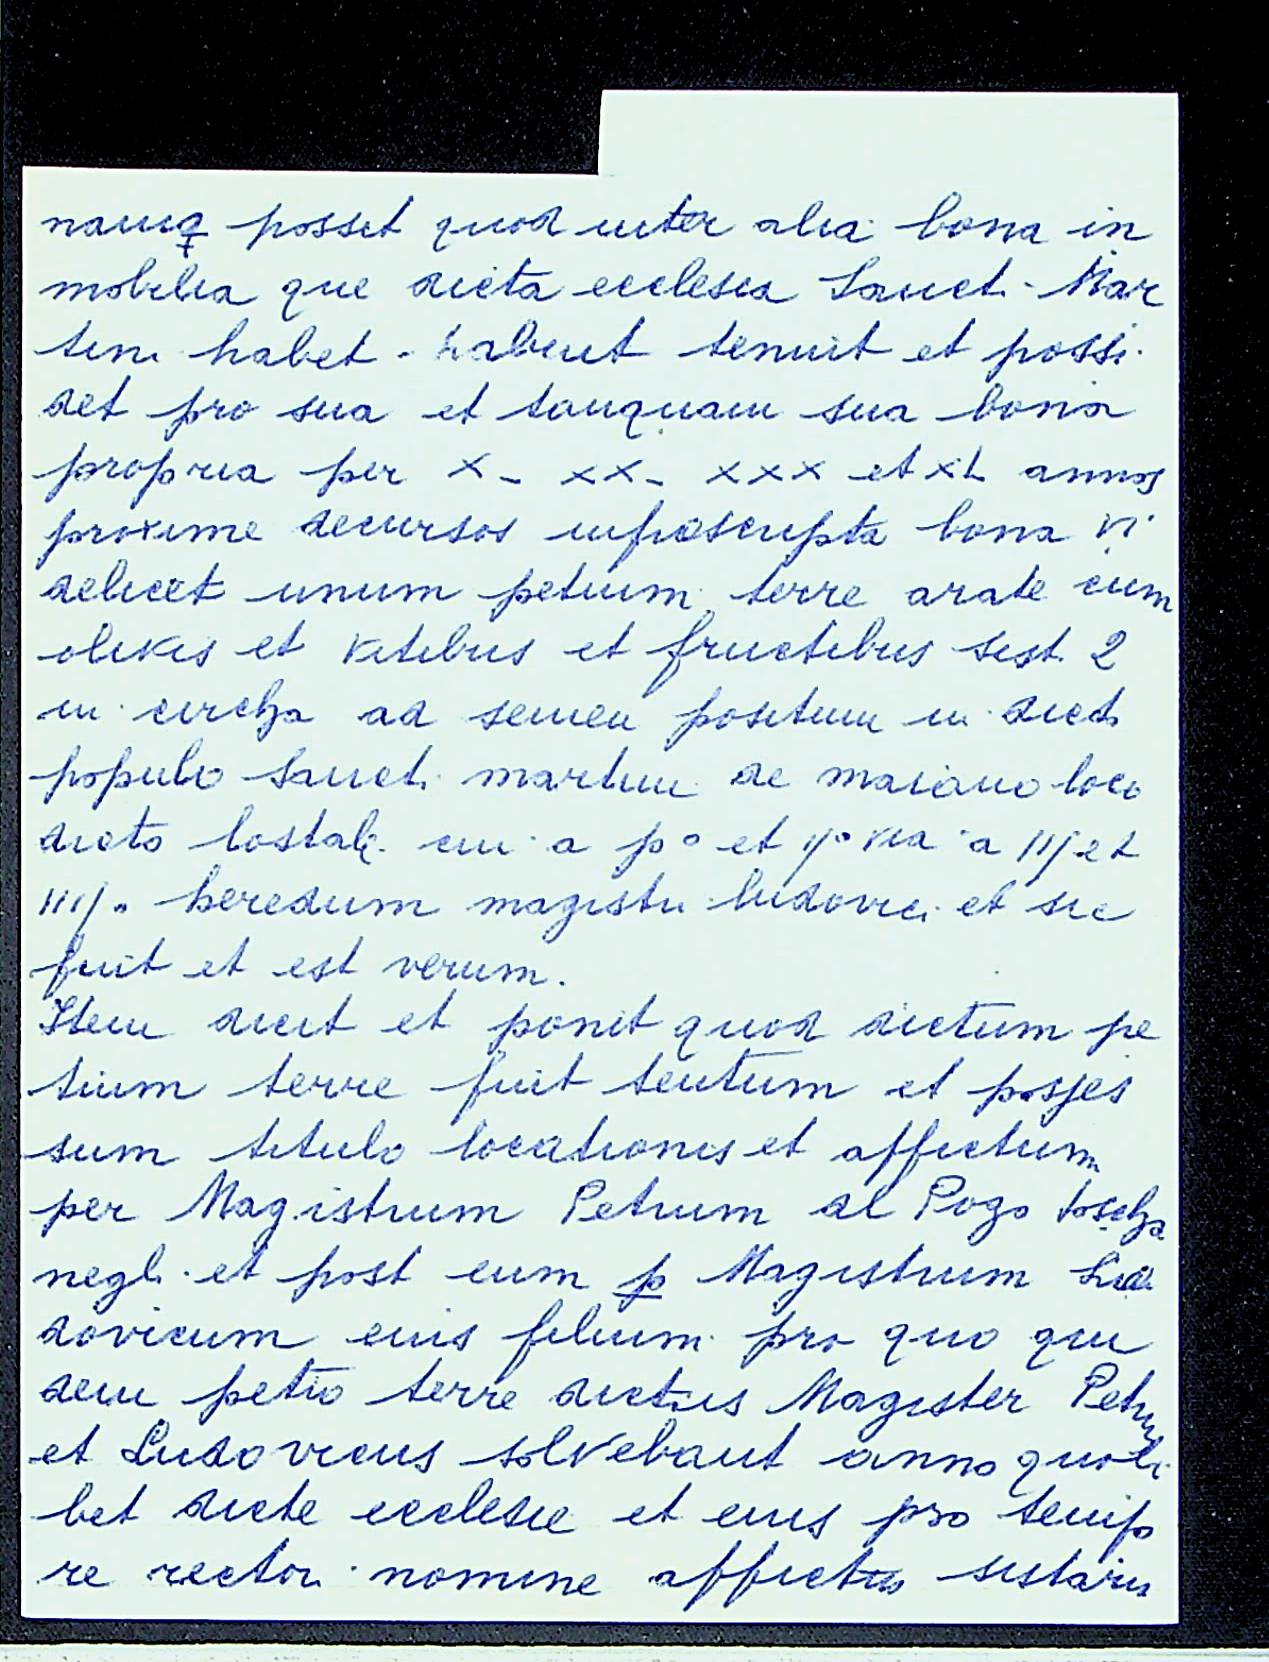 namq posset quod inter alia bona in
mobilia que dicta ecclesia Sancti Mar
tini habet - habuit tenuit et possi.
det pro sua et tanquam sua bona
propria per X - XX - XXX et XL annos
proxime decursos infrascripta bona vi
delicet unum petium terre arate cum
olivis et vitibus et fructibus sist. 2
in circha ad semen positum in dicto
populo Sancti martini de maiano loco
dicto lostale cui a po et ijo via a iij et
iiijo heredum magistri ludovici et sic
fuit et est verum.
Item dicit et ponit quod dictum pe
tium terre fuit tentum et posses
sum titulo locationis et affictum
per Magistrum Petrum al Pogo toscha
negli et post eum p Magistrum Lu
dovicum eius filium pro quo qui
dem petio terre dictus Magister Petrus
et Ludovicus solvebant anno quoli
bet dicte ecclesie et eius pro tempo
re rectori nomine affictus sistaris